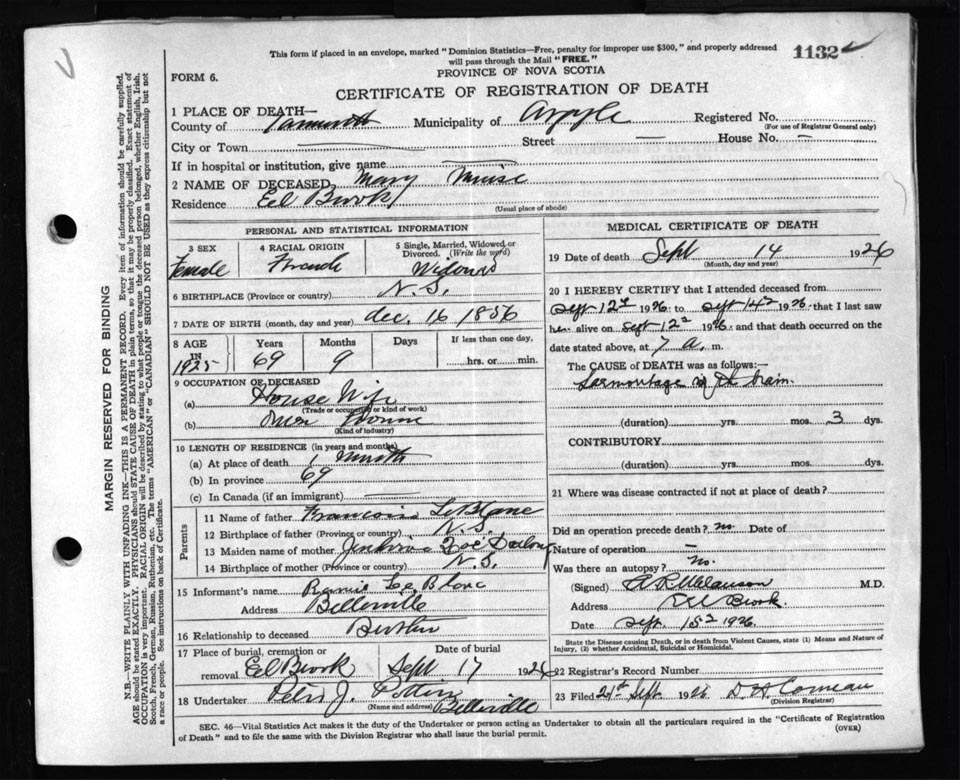 This form if placed in an envelope, marked "Dominion Statistics—Free, penalty for improper use $300," and properly addressed
will pass through the Mail "FREE."
1132
FORM 6.
PROVINCE OF NOVA SCOTIA
CERTIFICATE OF REGISTRATION OF DEATH
1 PLACE OF DEATH—
County of Yarmouth Municipality of Argyle Registered No.
(For use of Registrar General only)
City or Town — Street — House No. —
If in hospital or institution, give name —
2 NAME OF DECEASED Mary Muise
Residence Eel Brook
(Usual place of abode)
PERSONAL AND STATISTICAL INFORMATION
3 SEX
Female
4 RACIAL ORIGIN
French
5 Single, Married, Widowed or
Divorced. (Write the word)
Widowed
6 BIRTHPLACE (Province or country) N.S.
7 DATE OF BIRTH (month, day and year) dec. 16 1856
8 AGE IN 1925
Years Months Days If less than one day,
69 9 hrs. or min.
9 OCCUPATION OF DECEASED
(a) House Wife
(Trade or occupation or kind of work)
(b) Own Home
(Kind of industry)
10 LENGTH OF RESIDENCE (in years and months)
(a) At place of death 1 month
(b) In province 69
(c) In Canada (if an immigrant) —
Parents
11 Name of father Francois LeBlanc
12 Birthplace of father (Province or country) N.S.
13 Maiden name of mother
14 Birthplace of mother (Province or country) N.S.
15 Informant's name Remi LeBlanc
Address Belleville
16 Relationship to deceased
17 Place of burial, cremation or Date of burial
removal Eel Brook Sept 17 1926
18 Undertaker J. Pottier
(Name and address) Belleville
MEDICAL CERTIFICATE OF DEATH
19 Date of death Sept 14 1926
(Month, day and year)
20 I HEREBY CERTIFY that I attended deceased from
Sept 12 1926 to Sept 14 1926, that I last saw
her alive on Sept 12 1926 and that death occurred on the
date stated above, at 7 a. m.
The CAUSE of DEATH was as follows:—
of the brain.
(duration) yrs. mos. 3 dys.
CONTRIBUTORY
(duration) yrs. mos. dys.
21 Where was disease contracted if not at place of death?
Did an operation precede death? no Date of
Nature of operation —
Was there an autopsy? no.
(Signed) Melanson M.D.
Address Eel Brook.
Date Sept. 15 1926.
State the Disease causing Death, or in death from Violent Causes, state (1) Means and Nature of
Injury, (2) whether Accidental, Suicidal or Homicidal.
22 Registrar's Record Number
23 Filed 21st Sept 1926 Comeau
(Division Registrar)
SEC. 46—Vital Statistics Act makes it the duty of the Undertaker or person acting as Undertaker to obtain all the particulars required in the "Certificate of Registration
of Death" and to file the same with the Division Registrar who shall issue the burial permit.
(OVER)
MARGIN RESERVED FOR BINDING
N.B.—WRITE PLAINLY WITH UNFADING INK—THIS IS A PERMANENT RECORD. Every item of information should be carefully supplied.
AGE should be stated EXACTLY. PHYSICIANS should STATE CAUSE OF DEATH in plain terms, so that it may be properly classified. Exact statement of
OCCUPATION is very important. RACIAL ORIGIN will be described by stating to what people or tongue the deceased person belonged, whether English, Irish,
Scotch, French, German, Russian, Ruthenian, etc. The terms "AMERICAN" or "CANADIAN" SHOULD NOT BE USED as they express citizenship but not
a race or people. See instructions on back of Certificate.